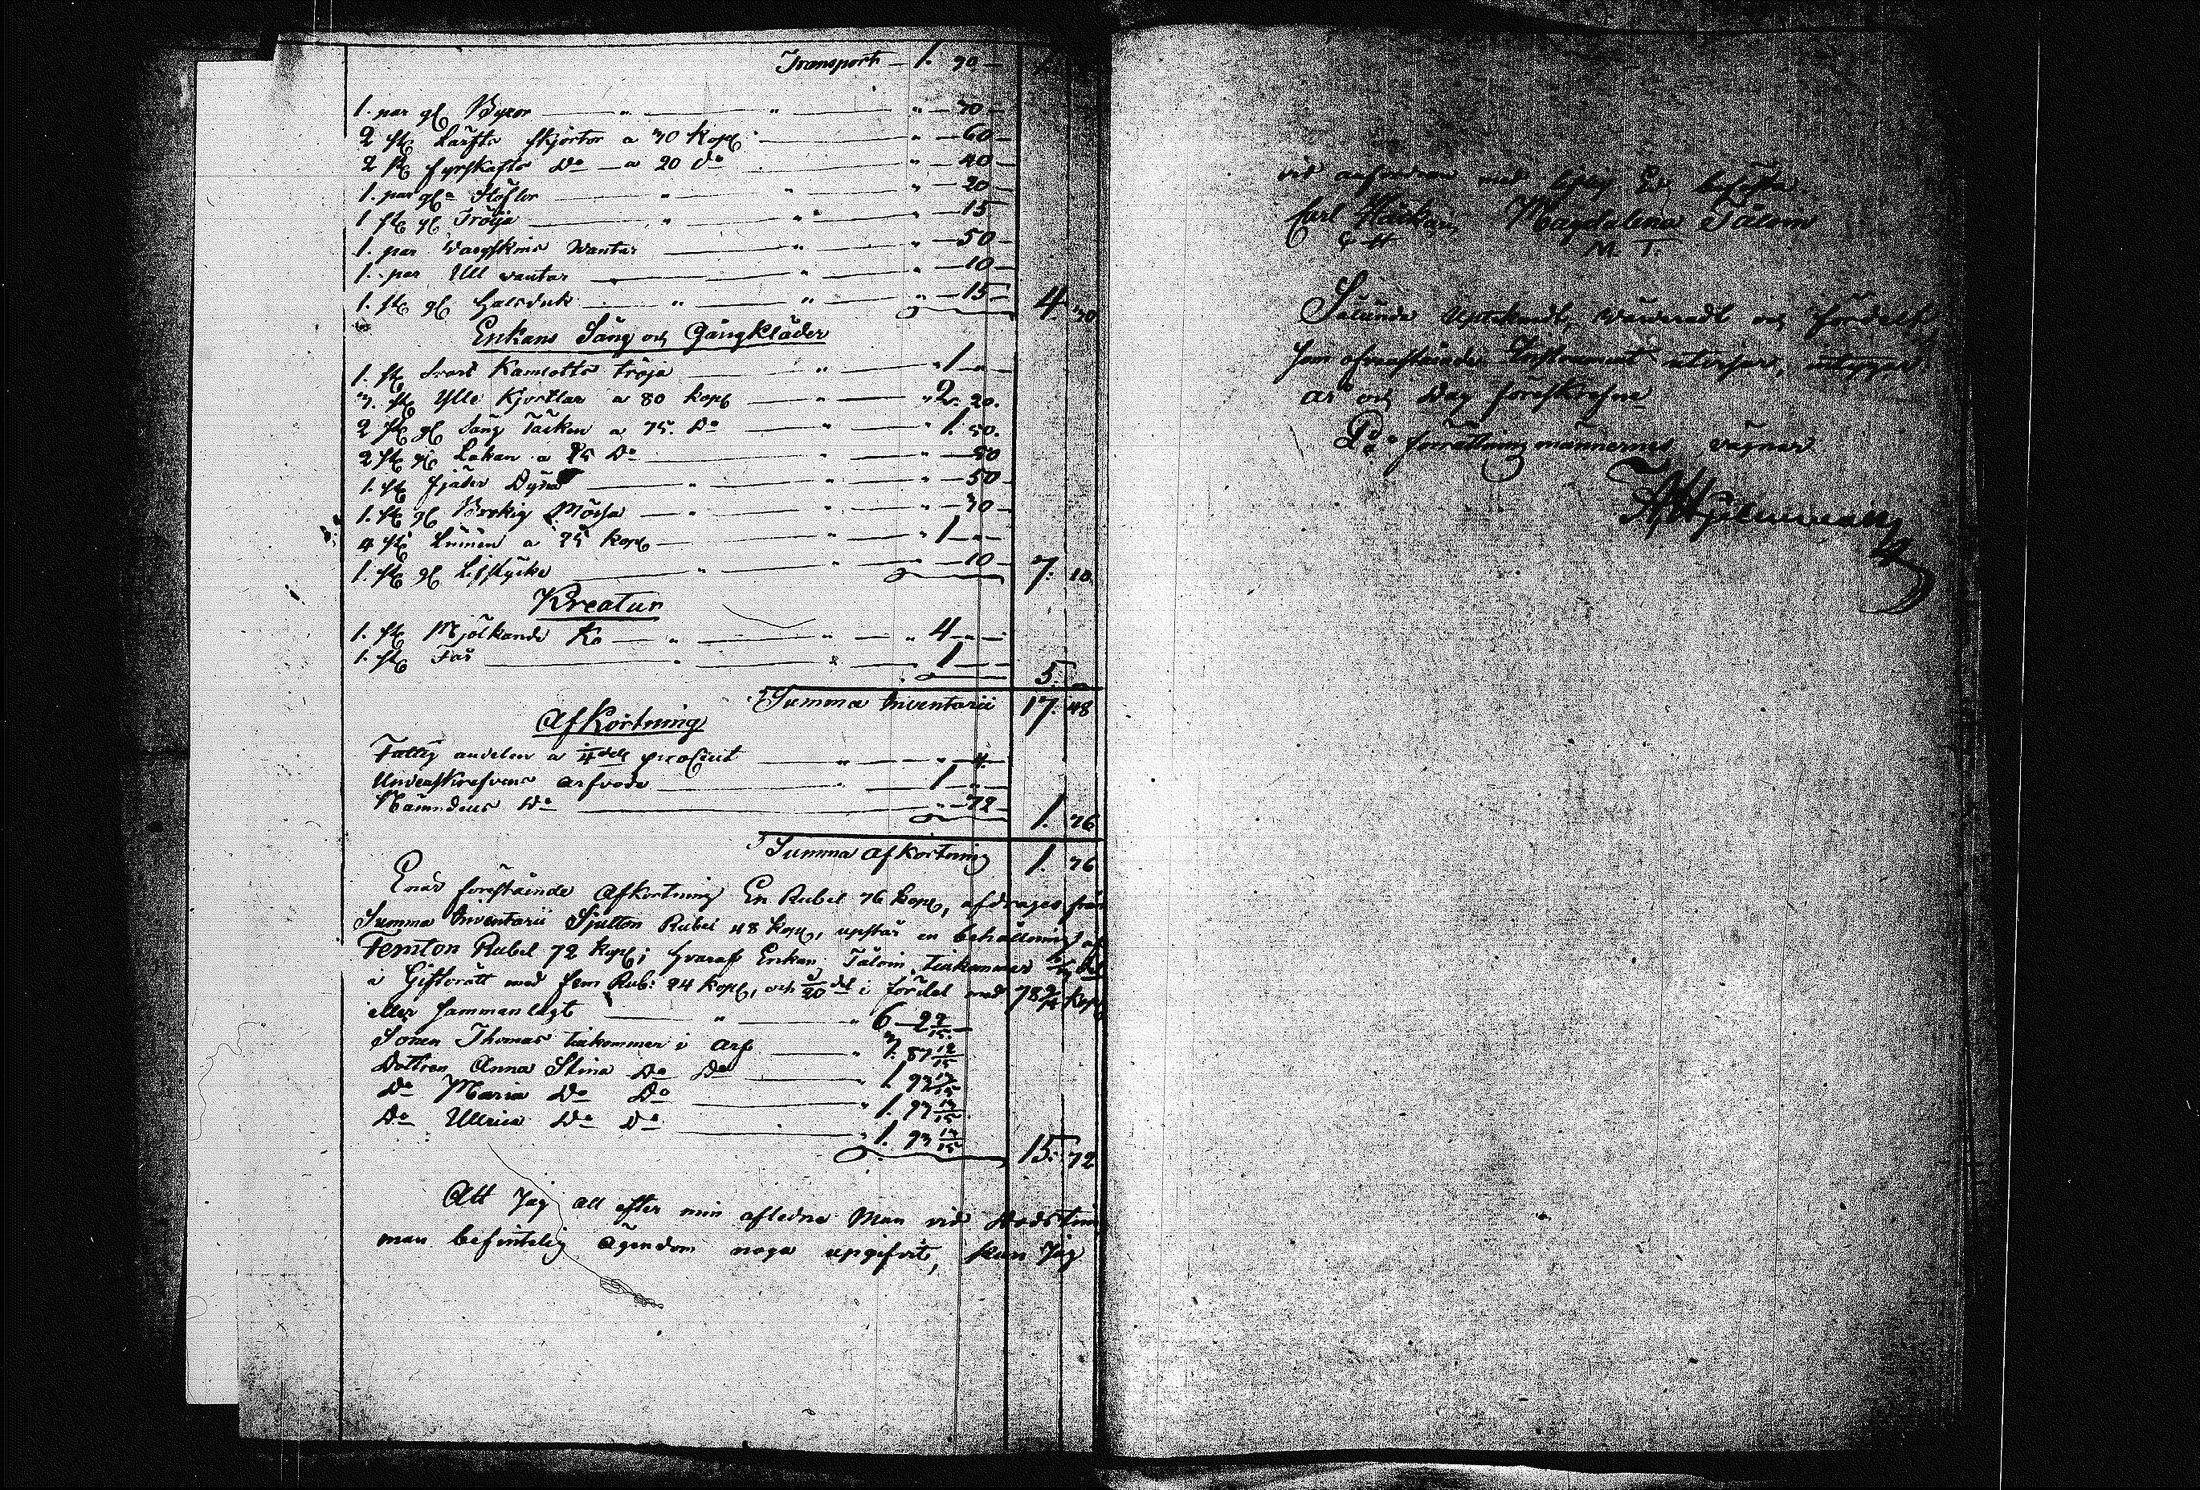 Transport — 1. 90 —
1. par gl Byxor — " — " — " — 30 —
2 st Lärfts skjortor a 30 kop — " — 60 —
2 st fyrskafts Do — a 20 do — " — 40 —
1. par gl Stöflor — " — " — 20 —
1 st gl Tröija — " — " — " — 15
1. par Vargskins Vantar — " — " — 50 —
1. par Ull vantar — " — " — 10 —
1. st gl Halsduk — " — " — " — 15 — 4. 30
Enkans Säng och Gångkläder
1. st Svart Kamlotts tröja — " — " 1 — " —
3. st Ylle Kjortlar a 80 kop — " — " 2. 20.
2 st gl Säng Täcken a 75. Do — " — " 1. 50.
2 st gl Lakan a 25 Do — " — " — 50
1. st fjäder Dyna — " — " — " — 50 —
1. st gl Brokig Mössa — " — " — " — 30 —
4 st Linnen a 25 kop — " — " 1 — " —
1. st gl Lifstycke — " — " — " — 10 — 7. 10.
Kreatur
1. st Mjölkande Ko — " — " — " 4 — " —
1. st Får — " — " — 1 — 5. "
Summa Inventarii 17. 48
Afkortning
Fattig andelen a 1/4dels procent — " — " — 4. —
Underskrefvens arfvode — " — 1 — " —
Nämndens Do — " — 72 — 1. 76
Summa Afkortning 1. 76
Enär förestående Afkortning En Rubel 76 kop, afdrages från
Summa Inventarii Sjutton Rubel 48 kop, upstår en behållning af
Femton Rubel 72 kop; hvaraf Enkan Taloin tillkommer 1/3 del
i Giftorätt med fem Rub: 24 kop, och 1/20 del i fördel med 78 kop
eller sammanlagt — " — " 6 — 2
Sonen Thomas tillkommer i arf — " 3. 87 12/15
Dottren Anna Stina Do Do — " 1. 93 13/15
Do Maria Do Do — " 1. 93 13/15
Do Ullrica Do Do — " 1. 93 13/15
15. 72
Att Jag all efter min afledne Man vid Dödstim
man befintelig ägendom noga upgifvit, kan Jag
vid anfordran med liflig Ed befästa
Carl Magdalena Taloin
C H M. T.
Sålunda Uptecknadt, värderadt och fördelt,
som ofvanstående Instrument utvisar, intygar
år och Dag föreskrefne
På förrättningsmännernes vägnar